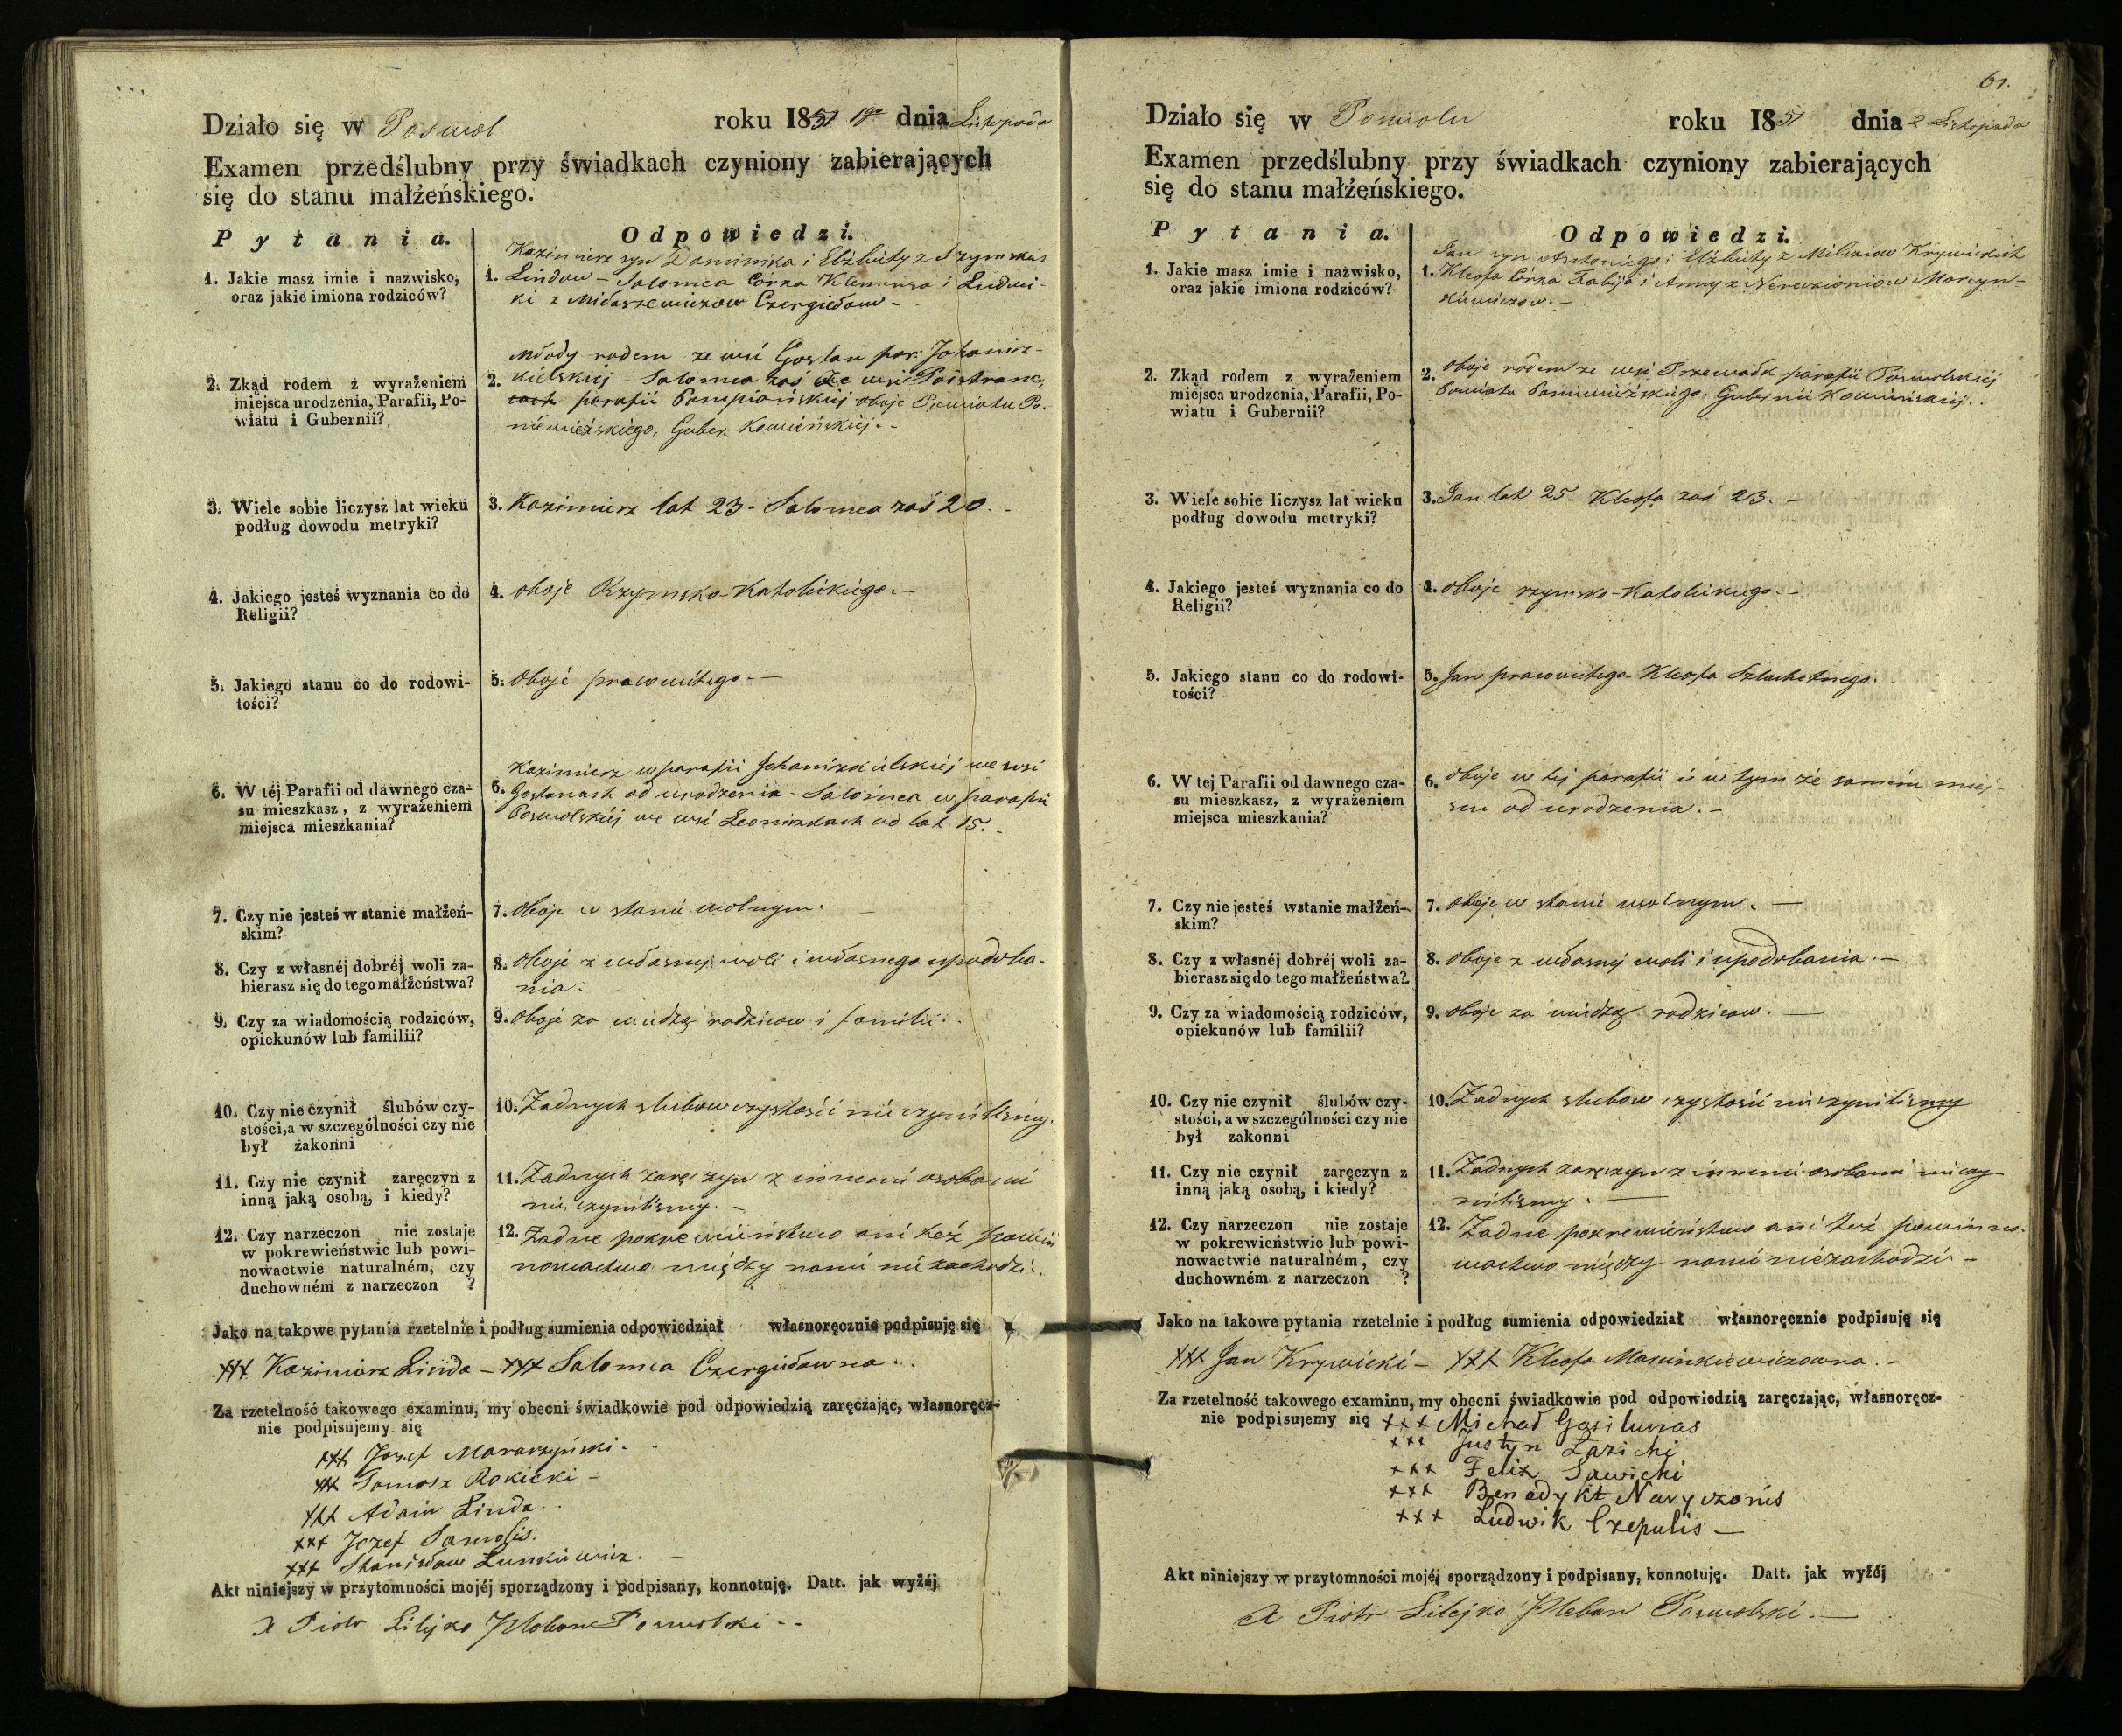 Działo się w Poswol roku 1851 19º dnia Listopada
Examen przedślubny przy świadkach czyniony zabierających
się do stanu małżeńskiego.
Pytania. Odpowiedzi.
1. Jakie masz imie i nazwisko,
oraz jakie imiona rodziców?
Kazimierz syn Dominika i Elżbiety z Szymkus
1. Lindow – Salomea Córka Klemensa i Ludwi-
ki z Midaszewiczow Czergiełow –
2. Zkąd rodem z wyrażeniem
miejsca urodzenia, Parafii, Po-
wiatu i Gubernii?
Młody rodem ze wsi Gostan par: Johanisz-
2. kielskiej – Salomea zaś ze wsi
parafii Pompiańskiej oboje Powiatu Po-
niewieżskiego, Guber: Kowieńskiej. –
3. Wiele sobie liczysz lat wieku
podług dowodu metryki?
3. Kazimierz lat 23 – Salomea zaś 20. –
4. Jakiego jesteś wyznania co do
Religii?
4. oboje Rzymsko-Katolickiego. –
5. Jakiego stanu co do rodowi-
tości?
5. Oboje prawowitego –
6. W téj Parafii od dawnego cza-
su mieszkasz, z wyrażeniem
miejsca mieszkania?
Kazimierz w parafii Johaniszkielskiej we wsi
6. Gostanach od urodzenia – Salomea w parafii
Poswolskiej we wsi od lat 15. –
7. Czy nie jesteś w stanie małżeń-
skim?
7. Oboje w stanie wolnym. –
8. Czy z własnéj dobréj woli za-
bierasz się do tego małżeństwa?
8. Oboje z własnej woli i własnego upodoba-
nia. –
9. Czy za wiadomością rodziców,
opiekunów lub familii?
9. Oboje za wiedzą rodzicow i familii. –
10. Czy nie czynił ślubów czy-
stości, a w szczególności czy nie
był zakonni
10. Żadnych slubow czystości nie czynilismy.
11. Czy nie czynił zaręczyn z
inną jaką osobą, i kiedy?
11. Żadnych zaręczyn z innemi osobami
nie czynilismy. –
12. Czy narzeczon nie zostaje
w pokrewieństwie lub powi-
nowactwie naturalném, czy
duchowném z narzeczon ?
12. Żadne pokrewieństwo ani też powin
nowactwo między nami nie zachodzi.
Jako na takowe pytania rzetelnie i podług sumienia odpowiedział własnoręcznie podpisuję się
xxx Kazimierz Linda – xxx Salomea Czergiełowna.
Za rzetelność takowego examinu, my obecni świadkowie pod odpowiedzią zaręczając, własnoręcz-
nie podpisujemy się
xxx Jozef
xxx Tomasz Rokicki –
xxx Adam Linda.
xxx Jozef
xxx Stanisław Lunkiewicz. –
Akt niniejszy w przytomności mojéj sporządzony i podpisany, konnotuję. Datt. jak wyżéj
X Piotr Lilejko Pleban Poswolski –
61.
Działo się w Poswolu roku 1851 dnia 2 Listopada
Examen przedślubny przy świadkach czyniony zabierających
się do stanu małżeńskiego.
Pytania. Odpowiedzi.
1. Jakie masz imie i nazwisko,
oraz jakie imiona rodziców?
Jan syn Antoniego i Elżbiety z Krywickich
1. Kleofa Córka Fabija i Anny z Marcyn-
kiewiczow. –
2. Zkąd rodem z wyrażeniem
miejsca urodzenia, Parafii, Po-
wiatu i Gubernii?
2. oboje rodem ze wsi parafii Poswolskiej
Powiatu Poniewieżskiego Gubernii Kowieńskiej.
3. Wiele sobie liczysz lat wieku
podług dowodu metryki?
3. Jan lat 25 – Kleofa zaś 23. –
4. Jakiego jesteś wyznania co do
Religii?
4. oboje rzymsko-Katolickiego. –
5. Jakiego stanu co do rodowi-
tości?
5. Jan prawowitego – Kleofa Szlachetnego.
6. W tej Parafii od dawnego cza-
su mieszkasz, z wyrażeniem
miejsca mieszkania?
6. oboje w tej parafii i w tym że samem miej-
scu od urodzenia. –
7. Czy nie jesteś wstanie małżeń-
skim?
7. oboje w stanie wolnym. –
8. Czy z własnéj dobréj woli za-
bierasz się do tego małżeństwa?
8. oboje z własnej woli i upodobania. –
9. Czy za wiadomością rodziców,
opiekunów lub familii?
9. oboje za wiedzą rodzicow. –
10. Czy nie czynił ślubów czy-
stości, a w szczególności czy nie
był zakonni
10. Żadnych slubow czystości nie czynilismy
11. Czy nie czynił zaręczyn z
inną jaką osobą, i kiedy?
11. Żadnych zaręczyn z innemi osobami nie czy-
nilismy. –
12. Czy narzeczon nie zostaje
w pokrewieństwie lub powi-
nowactwie naturalném, czy
duchowném z narzeczon ?
12. Żadne pokrewieństwo ani też powinno-
wactwo między nami nie zachodzi –
Jako na takowe pytania rzetelnie i podług sumienia odpowiedział własnoręcznie podpisuję się
xxx Jan Krywicki – xxx Kleofa Marcinkiewiczowna. –
Za rzetelność takowego examinu, my obecni świadkowie pod odpowiedzią zaręczając, własnoręcz-
nie podpisujemy się xxx Michał Gasilunas
xxx Justyn Łazicki
xxx Felix Sawicki
xxx Benedykt
xxx Ludwik Czepulis –
Akt niniejszy w przytomności mojéj sporządzony i podpisany, konnotuję. Datt. jak wyżéj
X Piotr Lilejko Pleban Poswolski. –